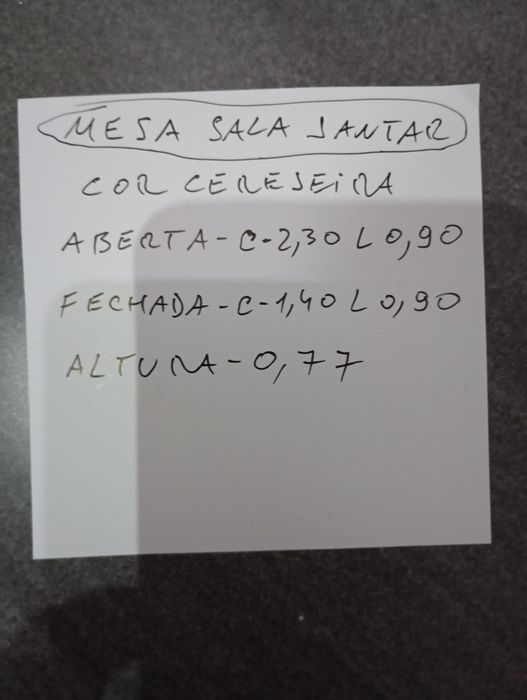 MESA SALA JANTAR
COR CEREJEIRA
ABERTA - C - 2,30 L 0,90
FECHADA - C - 1,40 L 0,90
ALTURA - 0,77